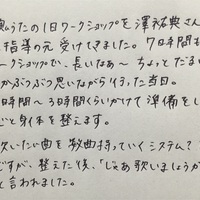 奥うたの1日ワークショップを澤祐典さん
指導の元 受けてきました。7日時間も
ワークショップで、長いなぁ〜 ちょっとだる
かぶつぶつ思いながら行った当日。
2時間〜3時間くらいかけて準備をし
ごと身体を整えます。
歌いたい曲を数曲持っていくシステム?
ですが、整えた後、「じゃあ歌いましょうか
と言われました。